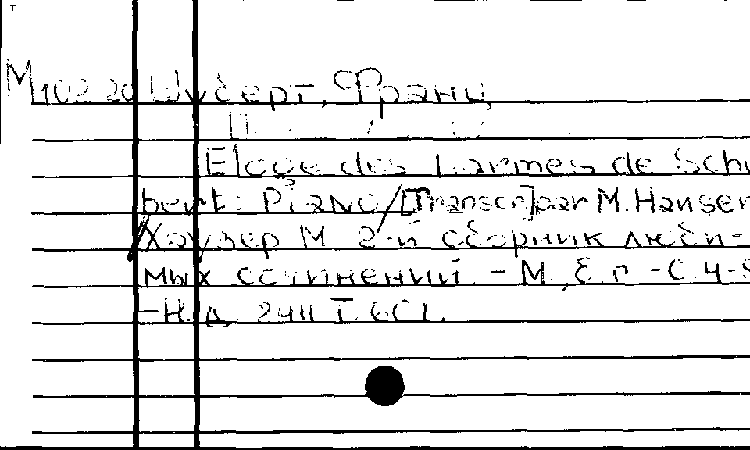 М102 20 Шуберт, Франц
Eloge des Larmes de Schu
bert: Piano / [Transcr] par M. Hauser
/ Хаузер М. 2-й сборник люби-
мых сочинений. - М., б. г. - С. 4-
- Н. д. 2411 Т. 601.